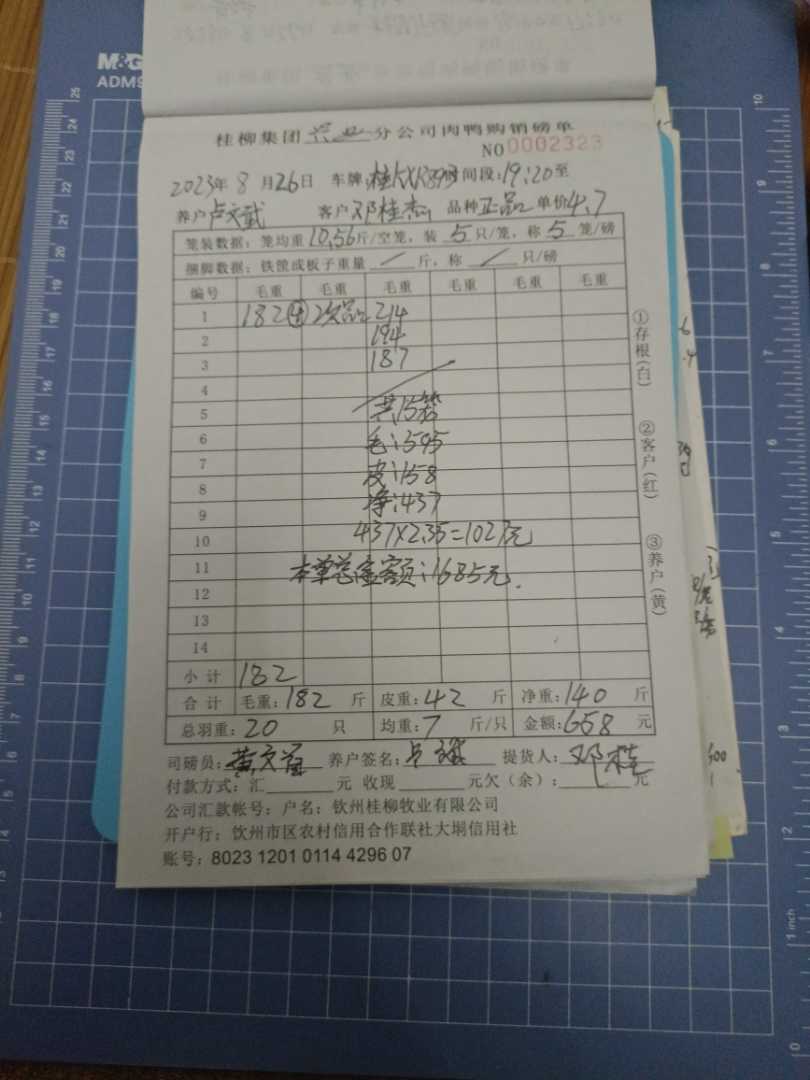 M&G
桂柳集团 兴业 分公司肉鸭购销磅单
NO 0002323
2023年 8 月 26日 车牌: 时间段:19:20至
养户 卢文武 客户 邓桂杰 品种 正品 单价 4.7
笼装数据: 笼均重 10.56 斤/空笼, 装 5 只/笼, 称 5 笼/磅
捆脚数据: 铁筐或板子重量 / 斤, 称 / 只/磅
编号 毛重 毛重 毛重 毛重 毛重 毛重
1 182④ 次品: 214
2 194
3 187
4
5 共15笼
6 毛:595
7
8 皮:158
9 净:437
10 437×2.35=1027元
11 本单总金额:1685元.
12
13
14
小计 182
合计 毛重: 182 斤 皮重: 42 斤 净重: 140 斤
总羽重: 20 只 均重: 7 斤/只 金额: 658 元
司磅员: 养户签名: 提货人: 邓桂
付款方式: 汇 元 收现 元欠(余): 元
公司汇款帐号: 户名: 钦州桂柳牧业有限公司
开户行: 钦州市区农村信用合作联社大垌信用社
账号: 8023 1201 0114 4296 07
①存根(白)
②客户(红)
③养户(黄)